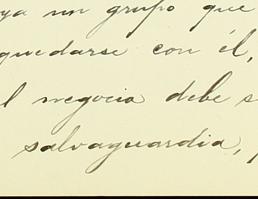 ya un grupo que
quedarse con él,
l negocio debe s
salvaguardia,